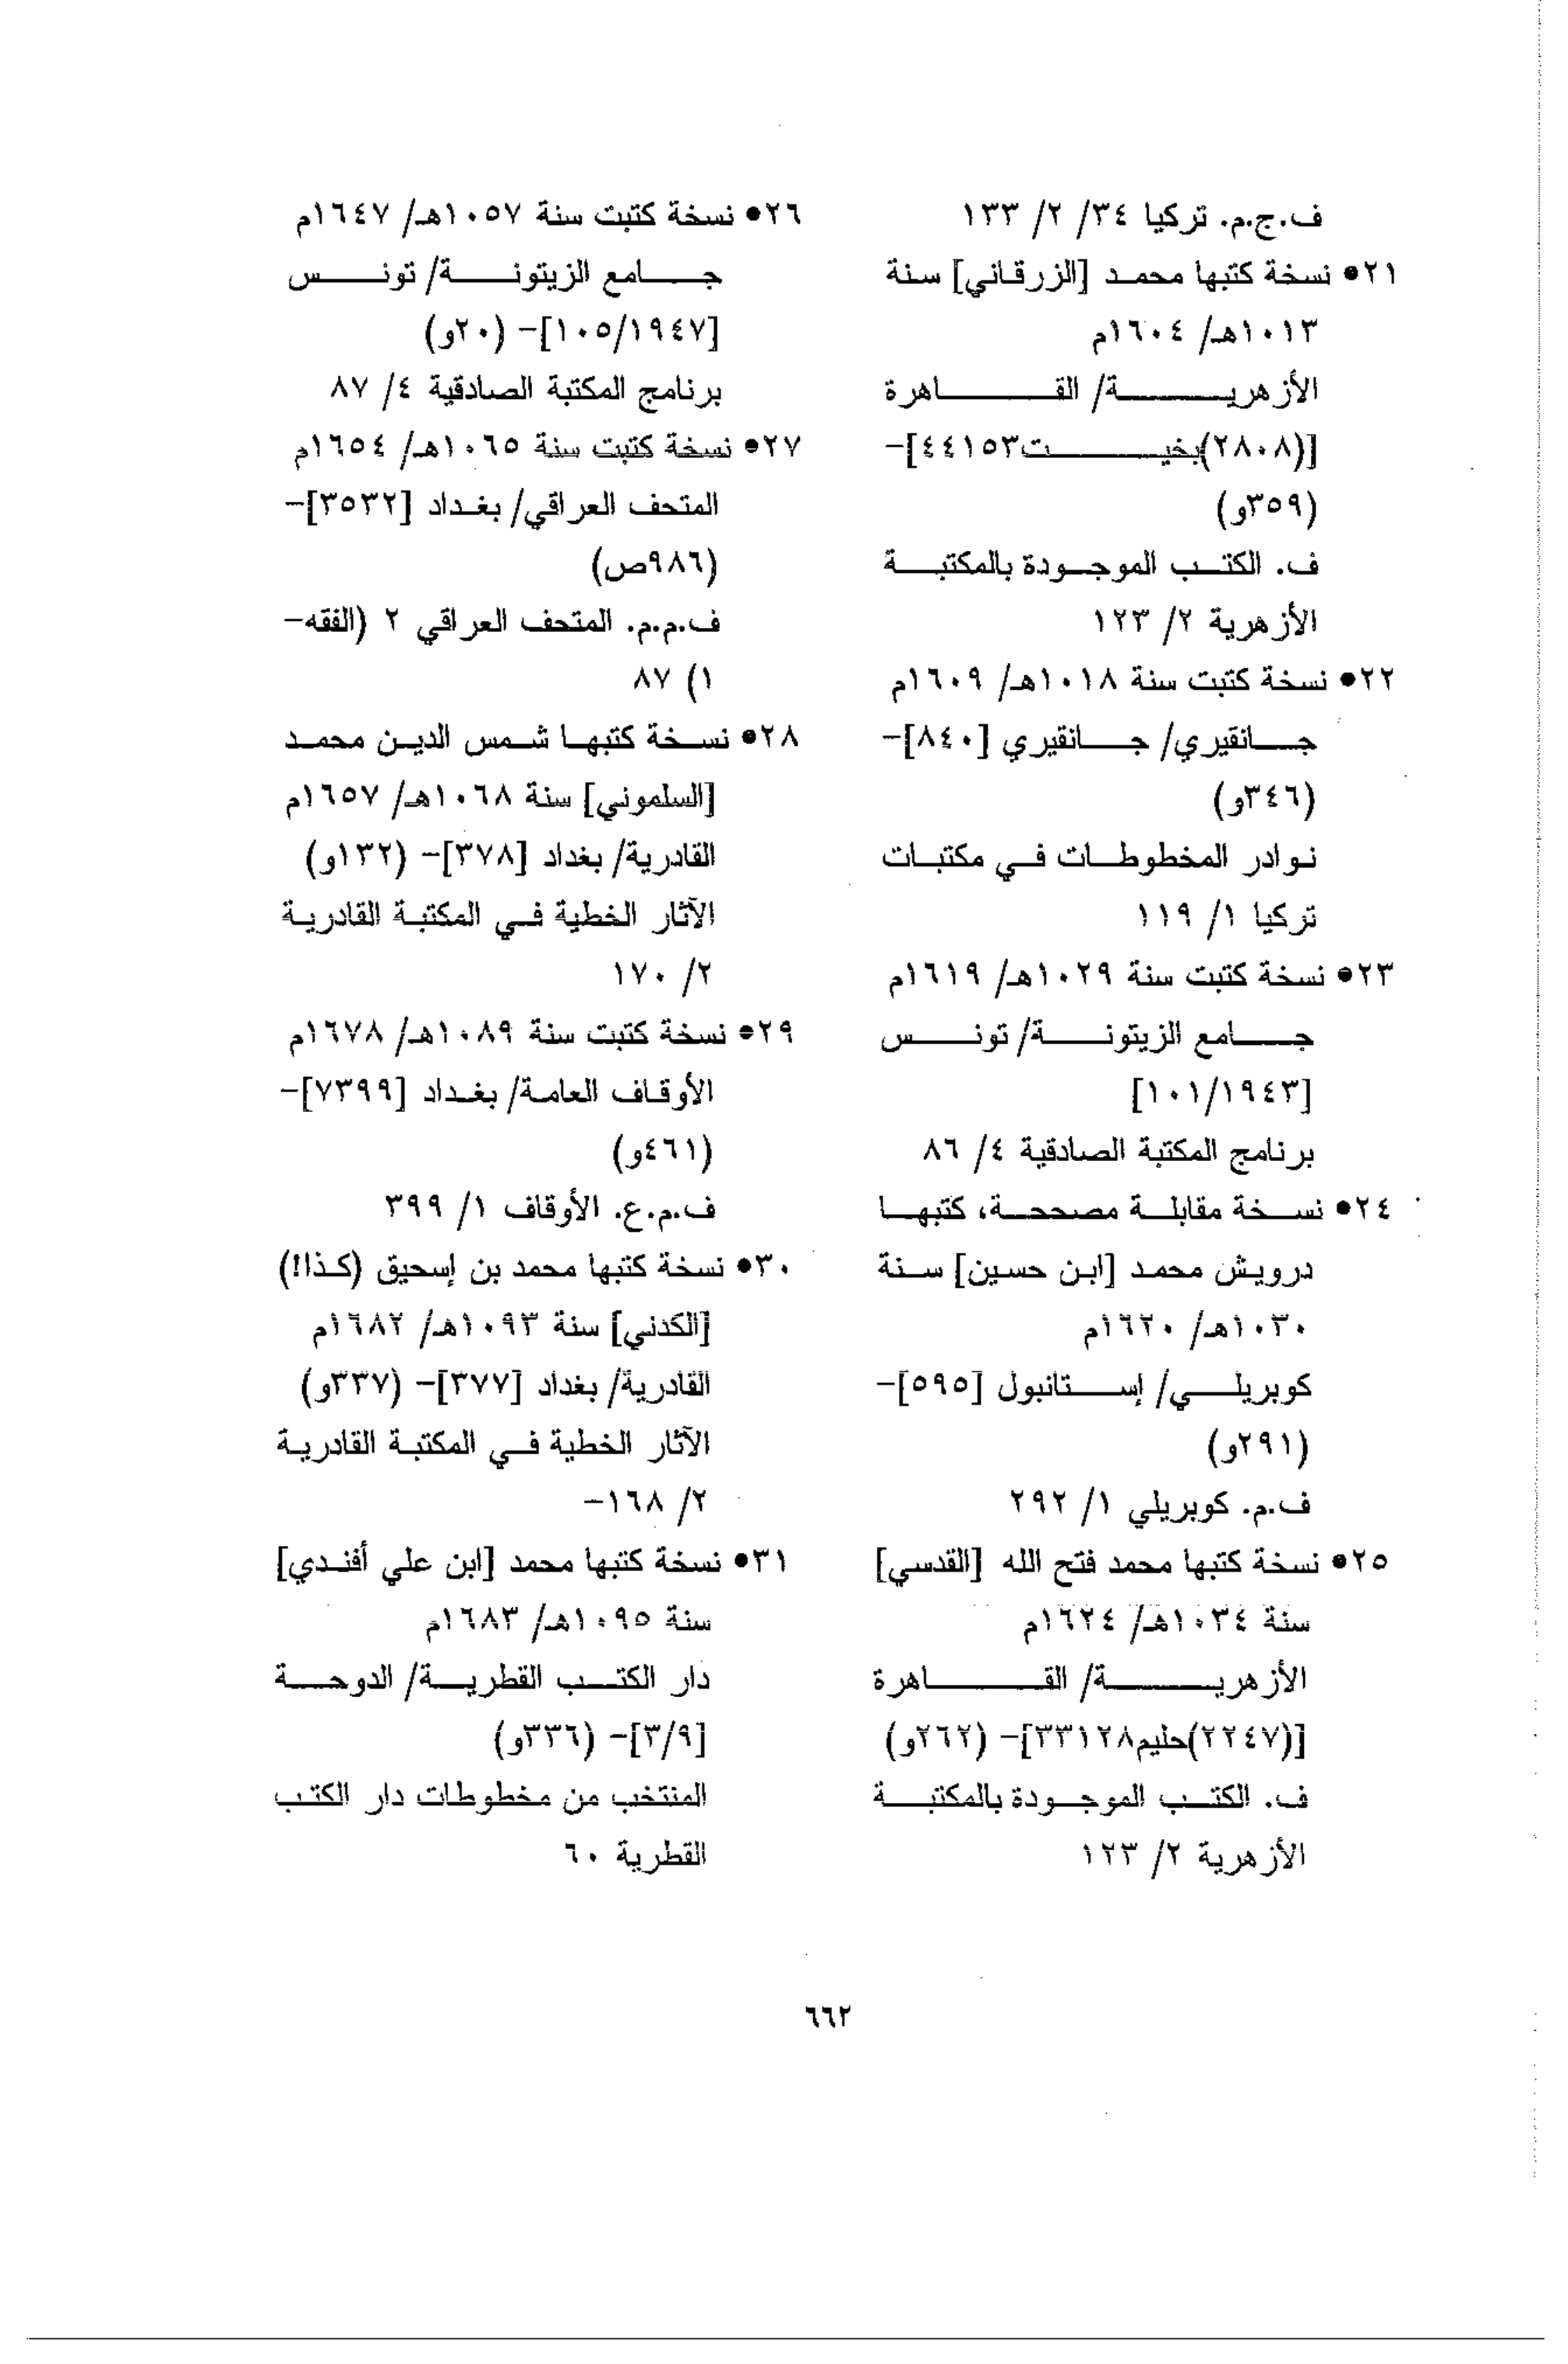 ف.ج.م. تركيا ٣٤/ ٢/ ١٣٣
٢١● نسخة كتبها محمد [الزرقاني] سنة
١٠١٣هـ/ ١٦٠٤م
الأزهرية/ القاهرة
[(٢٨٠٨)بخيت٤٤١٥٣]-
(٣٥٩و)
ف. الكتب الموجودة بالمكتبة
الأزهرية ٢/ ١٢٣
٢٢● نسخة كتبت سنة ١٠١٨هـ/ ١٦٠٩م
جانقيري/ جانقيري [٨٤٠]-
(٣٤٦و)
نوادر المخطوطات في مكتبات
تركيا ١/ ١١٩
٢٣● نسخة كتبت سنة ١٠٢٩هـ/ ١٦١٩م
جامع الزيتونة/ تونس
[١٠١/١٩٤٣]
برنامج المكتبة الصادقية ٤/ ٨٦
٢٤● نسخة مقابلة مصححة، كتبها
درويش محمد [ابن حسين] سنة
١٠٣٠هـ/ ١٦٢٠م
كوبريلي/ إستانبول [٥٩٥]-
(٢٩١و)
ف.م. كوبريلي ١/ ٢٩٢
٢٥● نسخة كتبها محمد فتح الله [القدسي]
سنة ١٠٣٤هـ/ ١٦٢٤م
الأزهرية/ القاهرة
[(٢٢٤٧)حليم٣٣١٢٨]- (٢٦٢و)
ف. الكتب الموجودة بالمكتبة
الأزهرية ٢/ ١٢٣
٢٦● نسخة كتبت سنة ١٠٥٧هـ/ ١٦٤٧م
جامع الزيتونة/ تونس
[١٠٥/١٩٤٧]- (٢٠و)
برنامج المكتبة الصادقية ٤/ ٨٧
٢٧● نسخة كتبت سنة ١٠٦٥هـ/ ١٦٥٤م
المتحف العراقي/ بغداد [٣٥٣٢]-
(٩٨٦ص)
ف.م.م. المتحف العراقي ٢ (الفقه-
١) ٨٧
٢٨● نسخة كتبها شمس الدين محمد
[السلموني] سنة ١٠٦٨هـ/ ١٦٥٧م
القادرية/ بغداد [٣٧٨]- (١٣٢و)
الآثار الخطية في المكتبة القادرية
٢/ ١٧٠
٢٩● نسخة كتبت سنة ١٠٨٩هـ/ ١٦٧٨م
الأوقاف العامة/ بغداد [٧٣٩٩]-
(٤٦١و)
ف.م.ع. الأوقاف ١/ ٣٩٩
٣٠● نسخة كتبها محمد بن إسحيق (كذا!)
[الكدني] سنة ١٠٩٣هـ/ ١٦٨٢م
القادرية/ بغداد [٣٧٧]- (٣٣٧و)
الآثار الخطية في المكتبة القادرية
٢/ ١٦٨-
٣١● نسخة كتبها محمد [ابن علي أفندي]
سنة ١٠٩٥هـ/ ١٦٨٣م
دار الكتب القطرية/ الدوحة
[٣/٩]- (٣٣٦و)
المنتخب من مخطوطات دار الكتب
القطرية ٦٠
٦٦٢